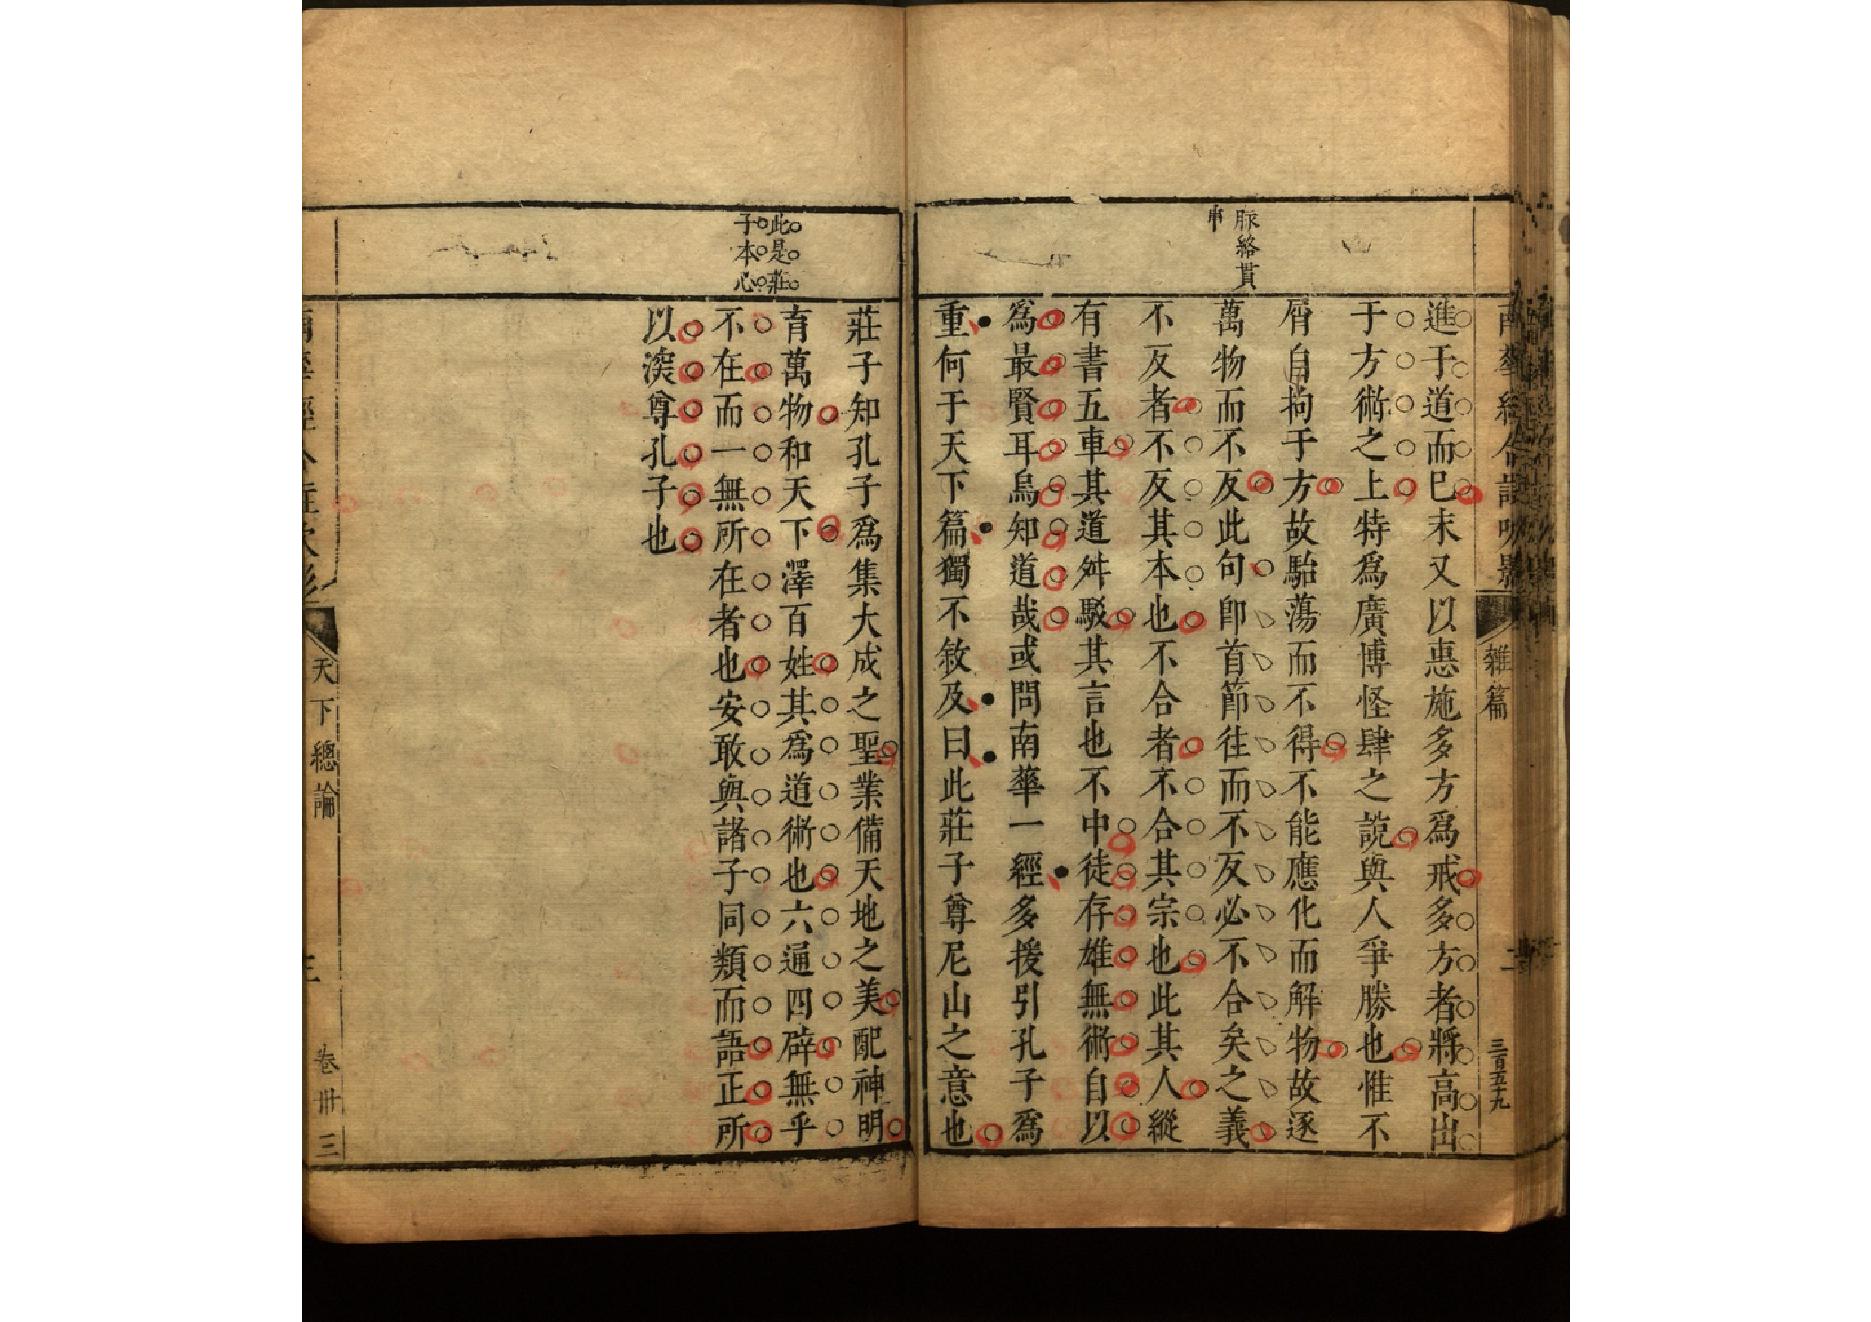 脉絡貫
串
進于道而巳末又以惠施多方爲戒多方者將高出
于方術之上特爲廣博怪肆之說與人爭勝也惟不
屑自拘于方故駘蕩而不得不能應化而解物故逐
萬物而不反此句卽首節往而不反必不合矣之義
不反者不反其本也不合者不合其宗也此其人縱
有書五車其道舛駁其言也不中徒存雄無術自以
爲最賢耳烏知道哉或問南華一經多援引孔子爲
重何于天下篇獨不敘及曰此莊子尊尼山之意也
雜篇
三百五十九
此是莊
子本心
莊子知孔子爲集大成之聖業備天地之美配神明
育萬物和天下澤百姓其爲道術也六通四辟無乎
不在而一無所在者也安敢與諸子同類而語正所
以深尊孔子也
天下總論
卷卅三